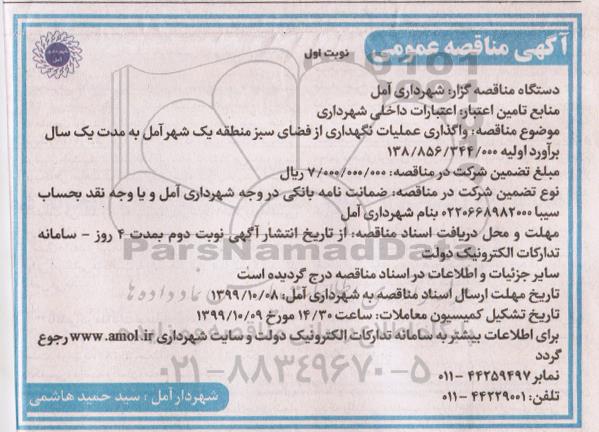 آگهی مناقصه عمومی
نوبت اول
دستگاه مناقصه گزار: شهرداری آمل
منابع تامین اعتبار: اعتبارات داخلی شهرداری
موضوع مناقصه: واگذاری عملیات نگهداری از فضای سبز منطقه یک شهر آمل به مدت یک سال
برآورد اولیه ۱۳۸/۸۵۶/۳۴۴/۰۰۰
مبلغ تضمین شرکت در مناقصه: ۷/۰۰۰/۰۰۰/۰۰۰ ریال
نوع تضمین شرکت در مناقصه: ضمانت نامه بانکی در وجه شهرداری آمل و یا وجه نقد بحساب
سیبا ۰۲۲۰۶۶۸۹۸۲۰۰۰ بنام شهرداری آمل
مهلت و محل دریافت اسناد مناقصه: از تاریخ انتشار آگهی نوبت دوم بمدت ۴ روز - سامانه
تدارکات الکترونیک دولت
سایر جزئیات و اطلاعات در اسناد مناقصه درج گردیده است
تاریخ مهلت ارسال اسناد مناقصه به شهرداری آمل: ۱۳۹۹/۱۰/۰۸
تاریخ تشکیل کمیسیون معاملات: ساعت ۱۴/۳۰ مورخ ۱۳۹۹/۱۰/۰۹
برای اطلاعات بیشتر به سامانه تدارکات الکترونیک دولت و سایت شهرداری www.amol.ir رجوع
گردد
نمابر ۴۴۲۵۹۴۹۷ -۰۱۱
تلفن: ۴۴۲۲۹۰۰۱ -۰۱۱
شهردار آمل : سید حمید هاشمی
ParsNamadData
۰۲۱-۸۸۳۴۹۶۷۰-۵